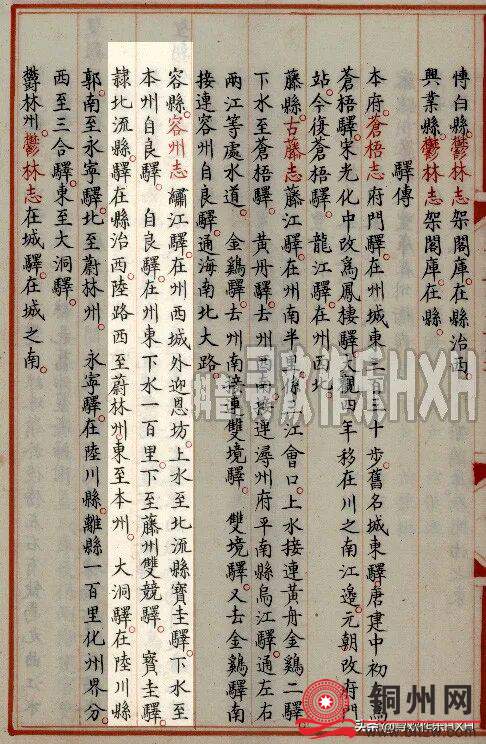 博白縣鬱林志架閣庫在縣治西
興業縣鬱林志架閣庫在縣
驛傳
本府蒼梧志府門驛在州城東二百三十步舊名城東驛唐建中初
蒼梧驛宋光化中改爲鳳棲驛大觀四年移在川之南江邉元朝改府門
站今復蒼梧驛龍江驛在州西北
藤縣古藤志藤江驛在州南半里江會口上水接連黃丹金二驛
下水至蒼梧驛黃丹驛去州接連潯州府平南縣烏江驛通左右
兩江等處水道金鷄驛去州南接連雙境驛雙境驛又去金鷄驛南
接連容州自良驛通海南北大路
容縣容州志繡江驛在州西城外迎恩坊上水至北流縣寶圭驛下水至
本州自良驛自良驛在州東下水一百里下至藤州雙競驛寳圭驛
隸北流縣驛在縣治西陸路西至蔚林州東至本州大洞驛在陸川縣
郭南至永寧驛北至蔚林州永寧驛在陸川縣離縣一百里化州界分
西至三合驛東至大洞驛
欝林州鬱林志在城驛在城之南
铜州网